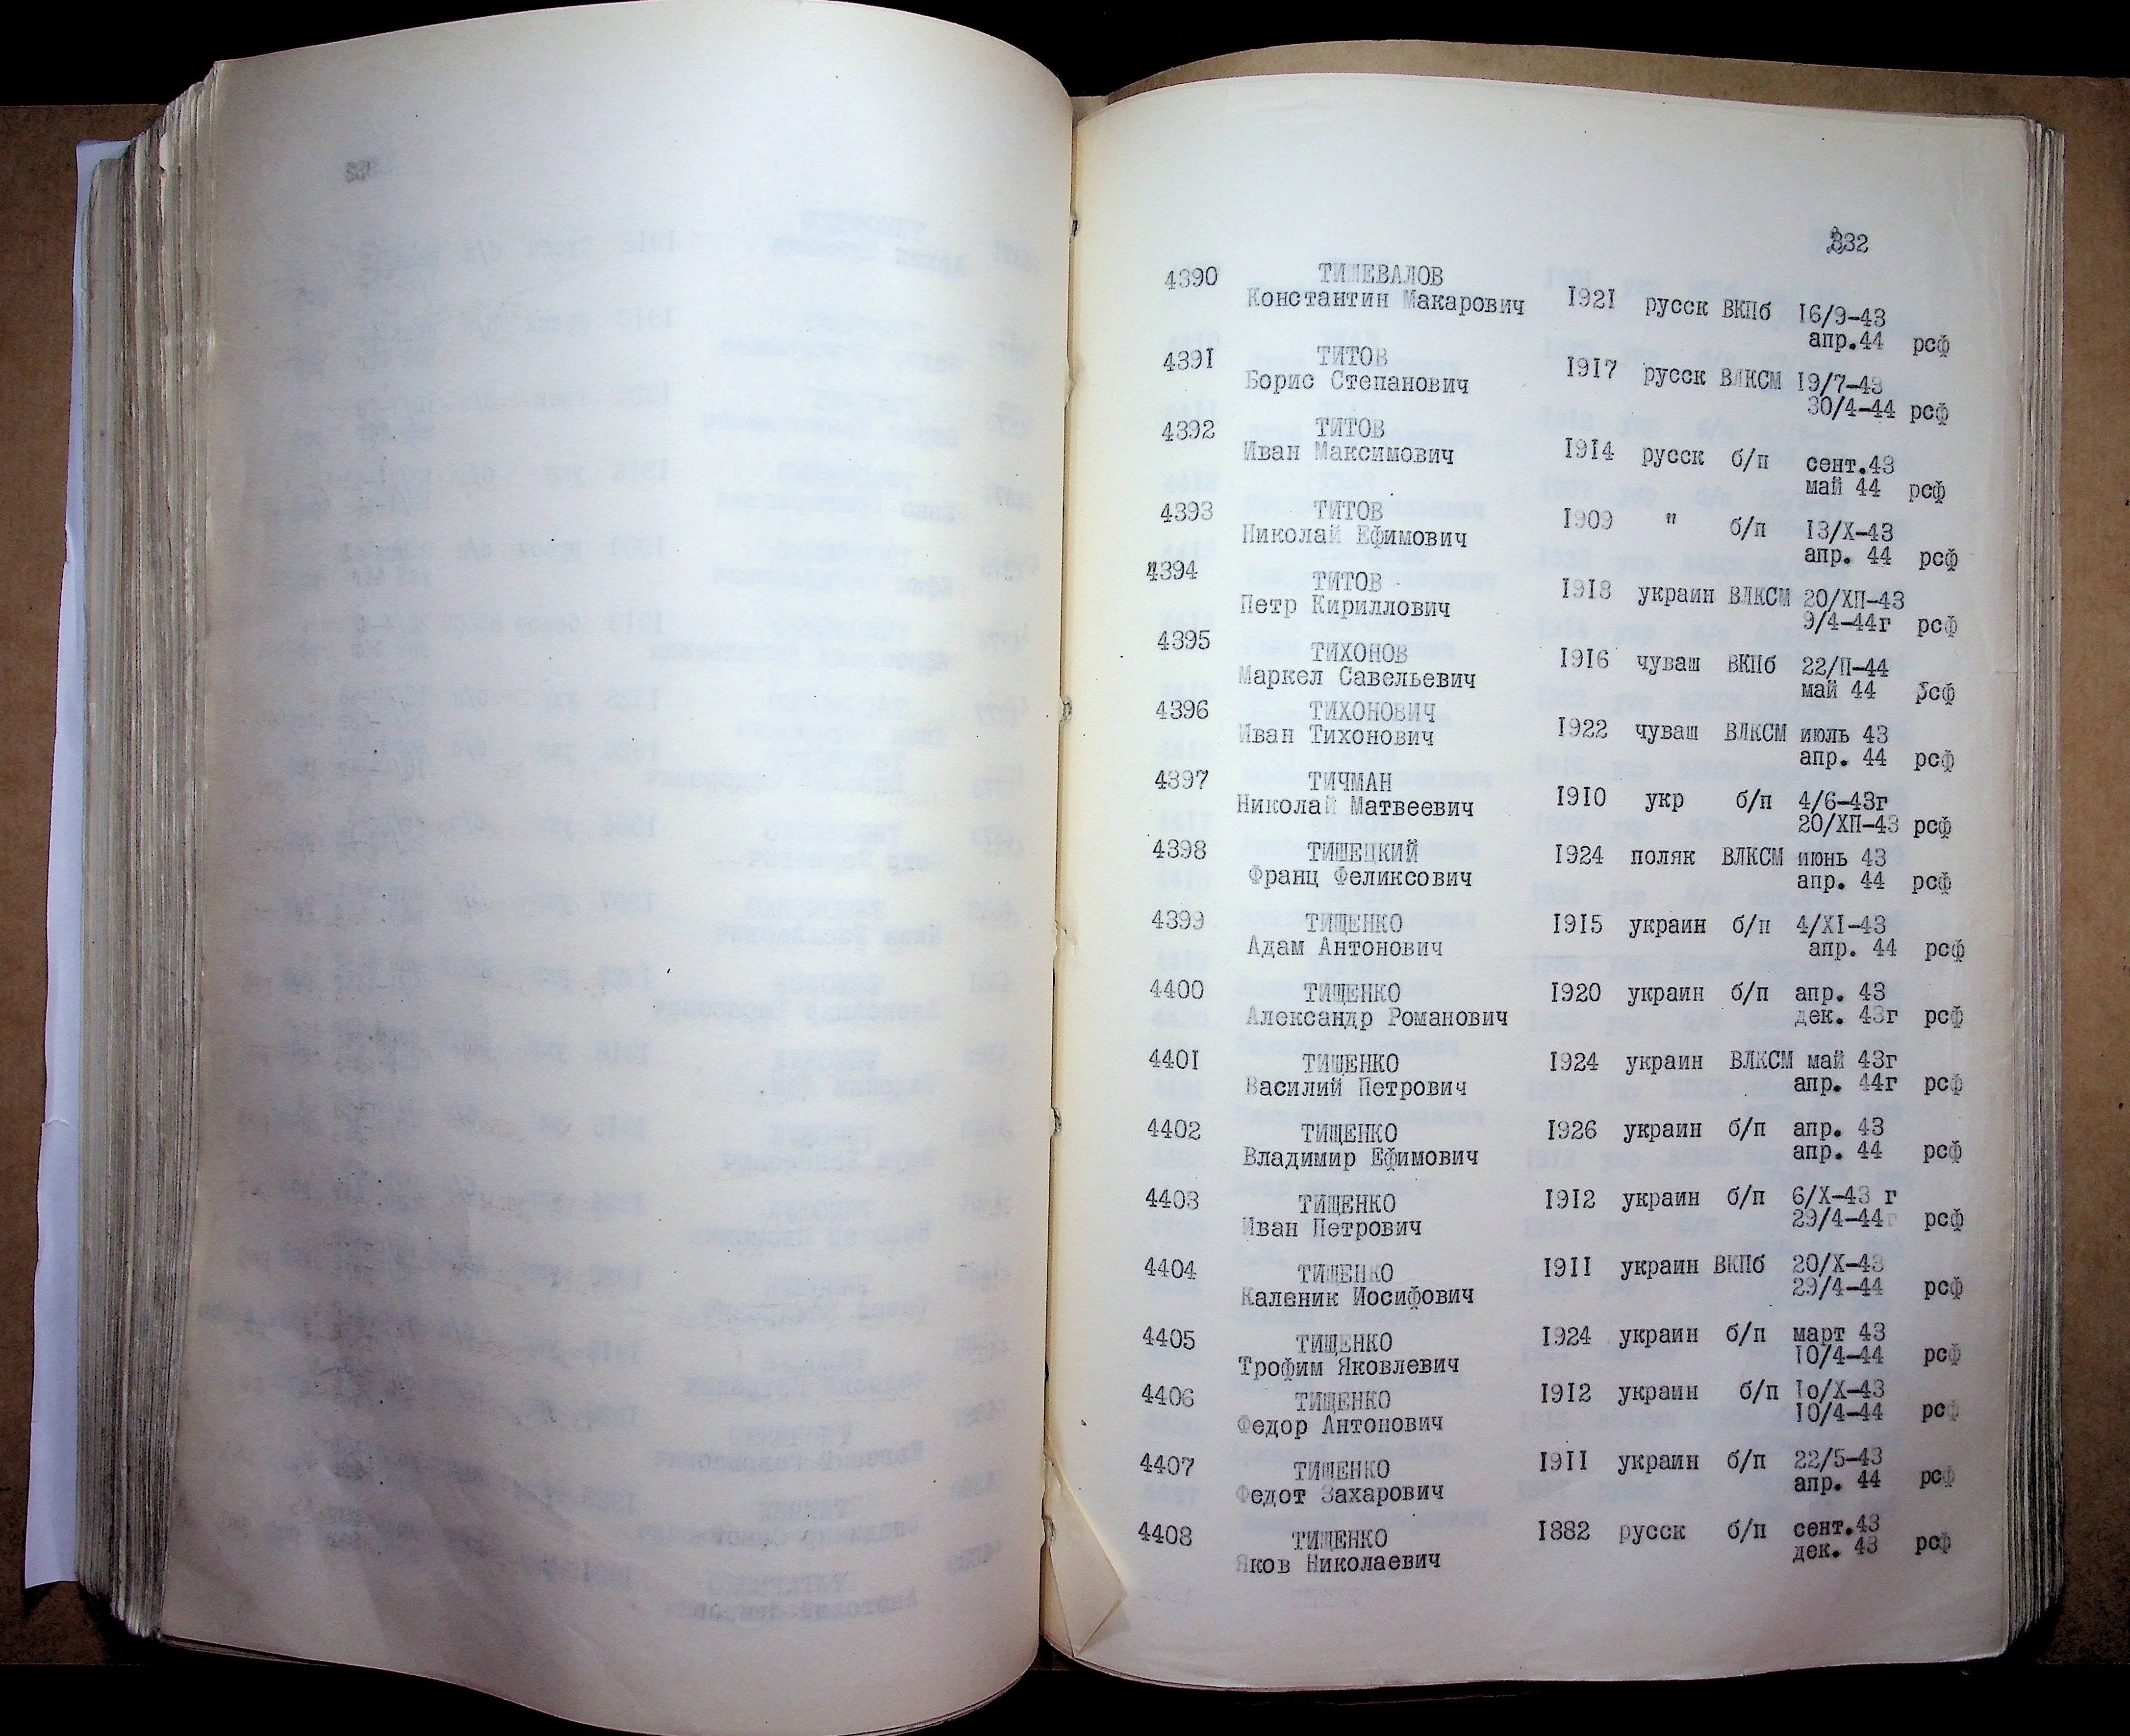 332
4390 ТИШЕВАЛОВ
Константин Макарович 1921 русск ВКПб 16/9-43
апр.44 рсф
4391 ТИТОВ
Борис Степанович 1917 русск ВЛКСМ 19/7-43
30/4-44 рсф
4392 ТИТОВ
Иван Максимович 1914 русск б/п сент.43
май 44 рсф
4393 ТИТОВ
Николай Ефимович 1909 " б/п 13/X-43
апр. 44 рсф
4394 ТИТОВ
Петр Кириллович 1918 украин ВЛКСМ 20/ХП-43
9/4-44г рсф
4395 ТИХОНОВ
Маркел Савельевич 1916 чуваш ВКПб 22/П-44
май 44 рсф
4396 ТИХОНОВИЧ
Иван Тихонович 1922 чуваш ВЛКСМ июль 43
апр. 44 рсф
4397 ТИЧМАН
Николай Матвеевич 1910 укр б/п 4/6-43г
20/ХП-43 рсф
4398 ТИШЕЦКИЙ
Франц Феликсович 1924 поляк ВЛКСМ июнь 43
апр. 44 рсф
4399 ТИЩЕНКО
Адам Антонович 1915 украин б/п 4/XI-43
апр. 44 рсф
4400 ТИЩЕНКО
Александр Романович 1920 украин б/п апр. 43
дек. 43г рсф
4401 ТИШЕНКО
Василий Петрович 1924 украин ВЛКСМ май 43г
апр. 44г рсф
4402 ТИЩЕНКО
Владимир Ефимович 1926 украин б/п апр. 43
апр. 44 рсф
4403 ТИЩЕНКО
Иван Петрович 1912 украин б/п 6/X-43 г
29/4-44г рсф
4404 ТИЩЕНКО
Каленик Иосифович 1911 украин ВКПб 20/X-43
29/4-44 рсф
4405 ТИЩЕНКО
Трофим Яковлевич 1924 украин б/п март 43
10/4-44 рсф
4406 ТИЩЕНКО
Федор Антонович 1912 украин б/п 1о/X-43
10/4-44 рсф
4407 ТИЩЕНКО
Федот Захарович 1911 украин б/п 22/5-43
апр. 44 рсф
4408 ТИЩЕНКО
Яков Николаевич 1882 русск б/п сент.43
дек. 43 рсф